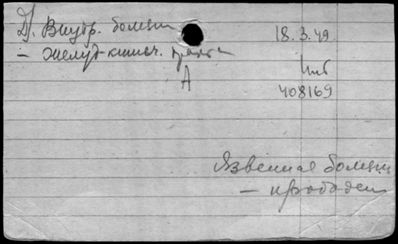 Д. Внутр. болезни
18.3.49
– желуд-кишеч. тракта
Инв
408169
А
Язвенная болезнь
– прободен